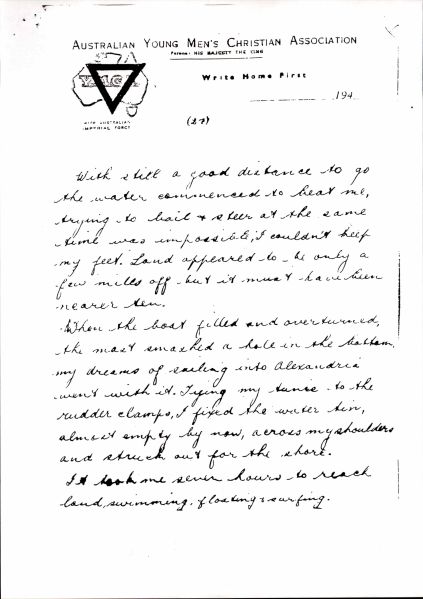 AUSTRALIAN YOUNG MEN'S CHRISTIAN ASSOCIATION
Patron: HIS MAJESTY THE KING
Y.M.C.A.
WITH AUSTRALIAN
IMPERIAL FORCE
Write Home First
194
(27)
With still a good distance to go
the water commenced to beat me,
trying to bail & steer at the same
time was impossible, I couldn't keep
my feet. Land appeared to be only a
few miles off but it must have been
nearer ten.
When the boat filled and overturned,
the mast smashed a hole in the bottom,
my dreams of sailing into Alexandria
went with it. Tying my tunic to the
rudder clamps, I fixed the water tin,
almost empty by now, across my shoulders
and struck out for the shore.
It took me seven hours to reach
land, swimming, floating & surfing.